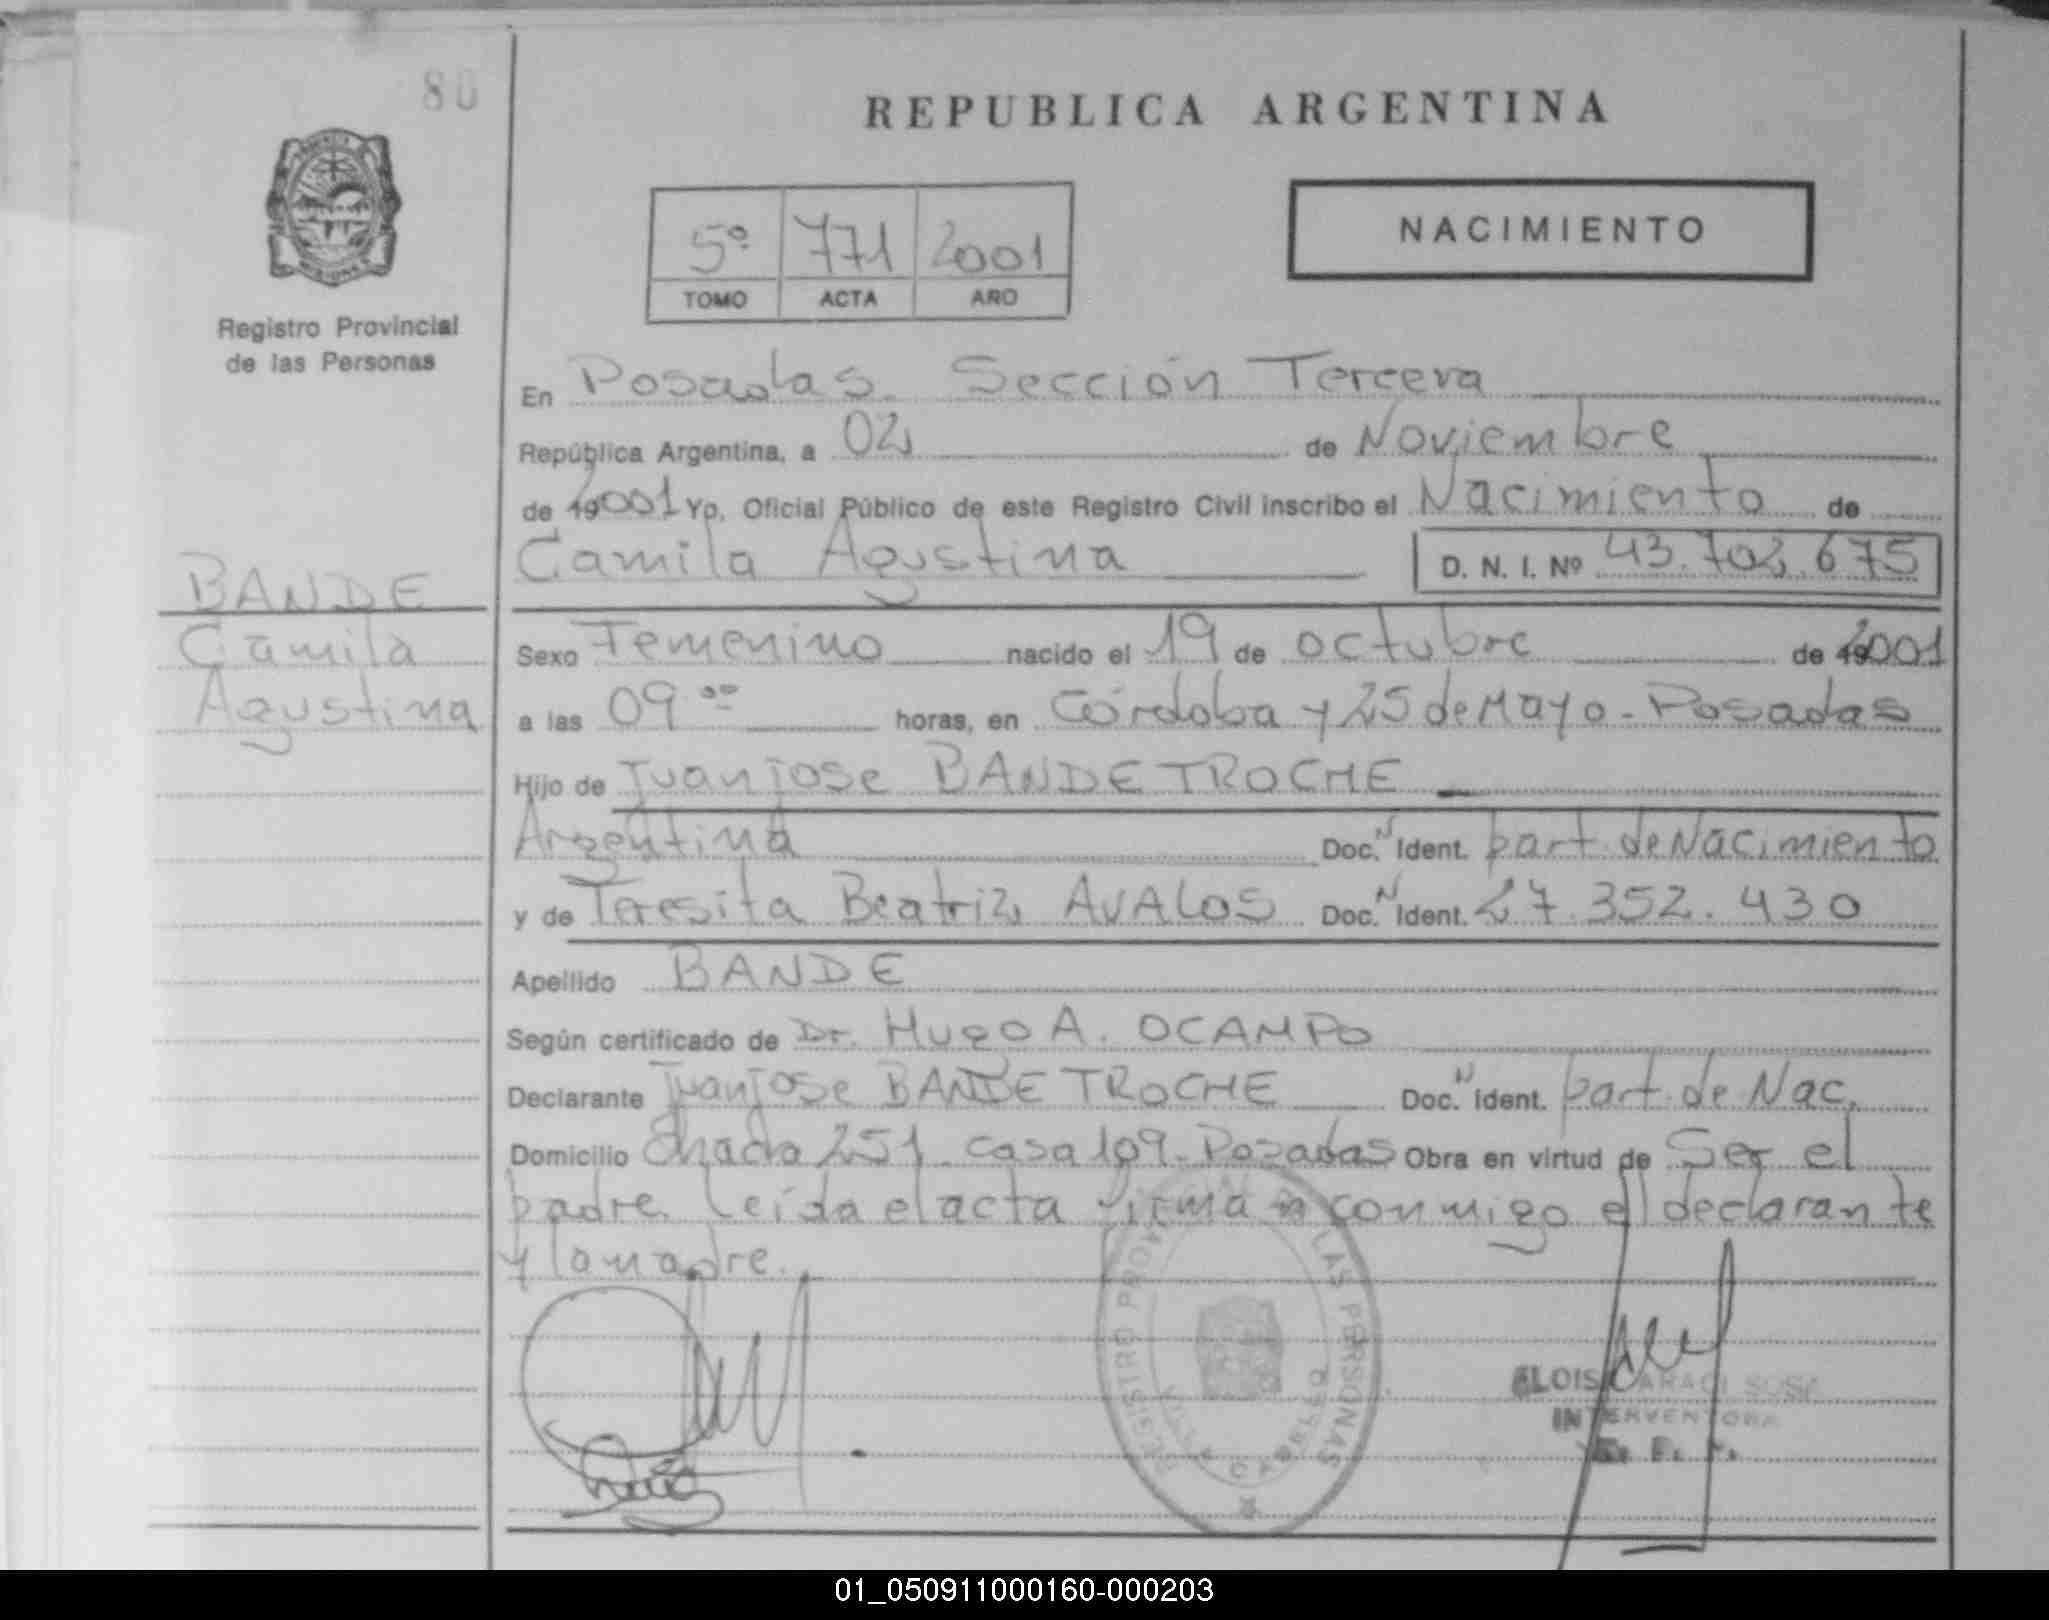 80
REPUBLICA ARGENTINA
NACIMIENTO
5º 771 2001
TOMO ACTA AÑO
Registro Provincial
de las Personas
En Posadas. Sección Tercera
República Argentina, a 02 de Noviembre
de 2001 Yo, Oficial Público de este Registro Civil inscribo el Nacimiento de
Camila Agustina D. N. I. Nº 43.702.675
BANDE
Camila
Agustina
Sexo Femenino nacido el 19 de octubre de 2001
a las 09 ºº horas, en Córdoba y 25 de Mayo - Posadas
Hijo de Juan Jose BANDE TROCHE
Argentina Doc. N Ident. part. de Nacimiento
y de Teresita Beatriz AVALOS Doc. N Ident. 27.352.430
Apellido BANDE
Según certificado de Dr. Hugo A. OCAMPO
Declarante Juan Jose BANDE TROCHE Doc. N ident. part. de Nac.
Domicilio Chacra 251 casa 109 - Posadas Obra en virtud de Ser el
padre. Leída el acta firman conmigo el declarante
y la madre.
REGISTRO PROVINCIAL DE LAS PERSONAS
VILLA CABELLO
INTERVENTORA
01_050911000160-000203